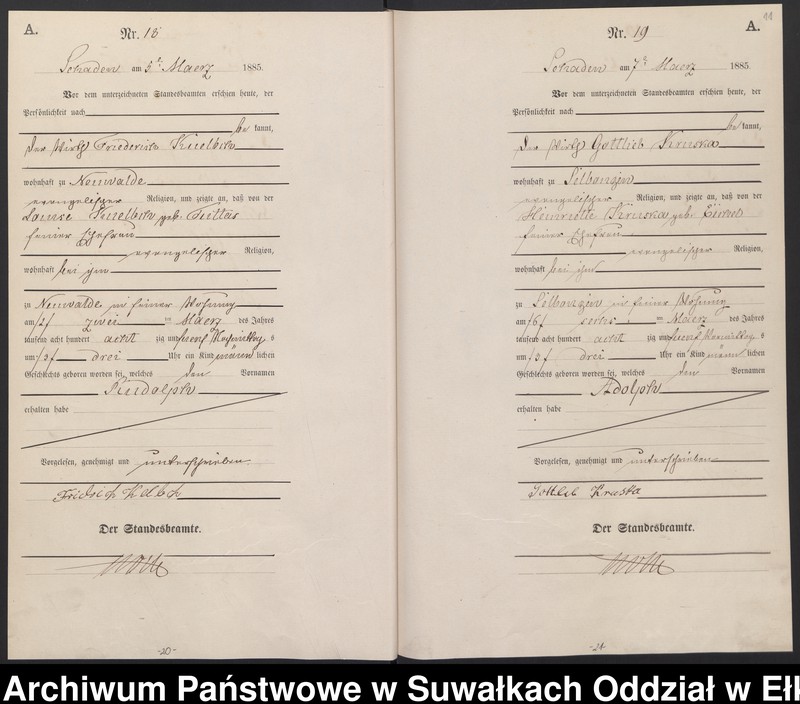 A.
Nr. 18
am 5. Maerz 1885.
Vor dem unterzeichneten Standesbeamten erschien heute, der
Persönlichkeit nach
be kannt,
der Wirth Friederich
wohnhaft zu Neuwalde
evangelischer Religion, und zeigte an, daß von der
Louise geb.
seiner Ehefrau
evangelischer Religion,
wohnhaft bei ihm
zu Neuwalde in seiner Wohnung
am /2/ zwei ten Maerz des Jahres
tausend acht hundert acht zig und fuenf Nachmittag s
um /3/ drei Uhr ein Kind männ lichen
Geschlechts geboren worden sei, welches den Vornamen
Rudolph
erhalten habe
Vorgelesen, genehmigt und unterschrieben
Der Standesbeamte.
-20-
11
A.
Nr. 19
am 7. Maerz 1885.
Vor dem unterzeichneten Standesbeamten erschien heute, der
Persönlichkeit nach
be kannt,
der Wirth Gottlieb Kruska
wohnhaft zu
evangelischer Religion, und zeigte an, daß von der
Henriette Kruska geb.
seiner Ehefrau
evangelischer Religion,
wohnhaft bei ihm
zu in seiner Wohnung
am /6/ sechs ten Maerz des Jahres
tausend acht hundert acht zig und fuenf Nachmittag s
um /3/ drei Uhr ein Kind männ lichen
Geschlechts geboren worden sei, welches den Vornamen
Adolph
erhalten habe
Vorgelesen, genehmigt und unterschrieben
Gottlieb Kruska
Der Standesbeamte.
-21-
Archiwum Państwowe w Suwałkach Oddział w Ełk